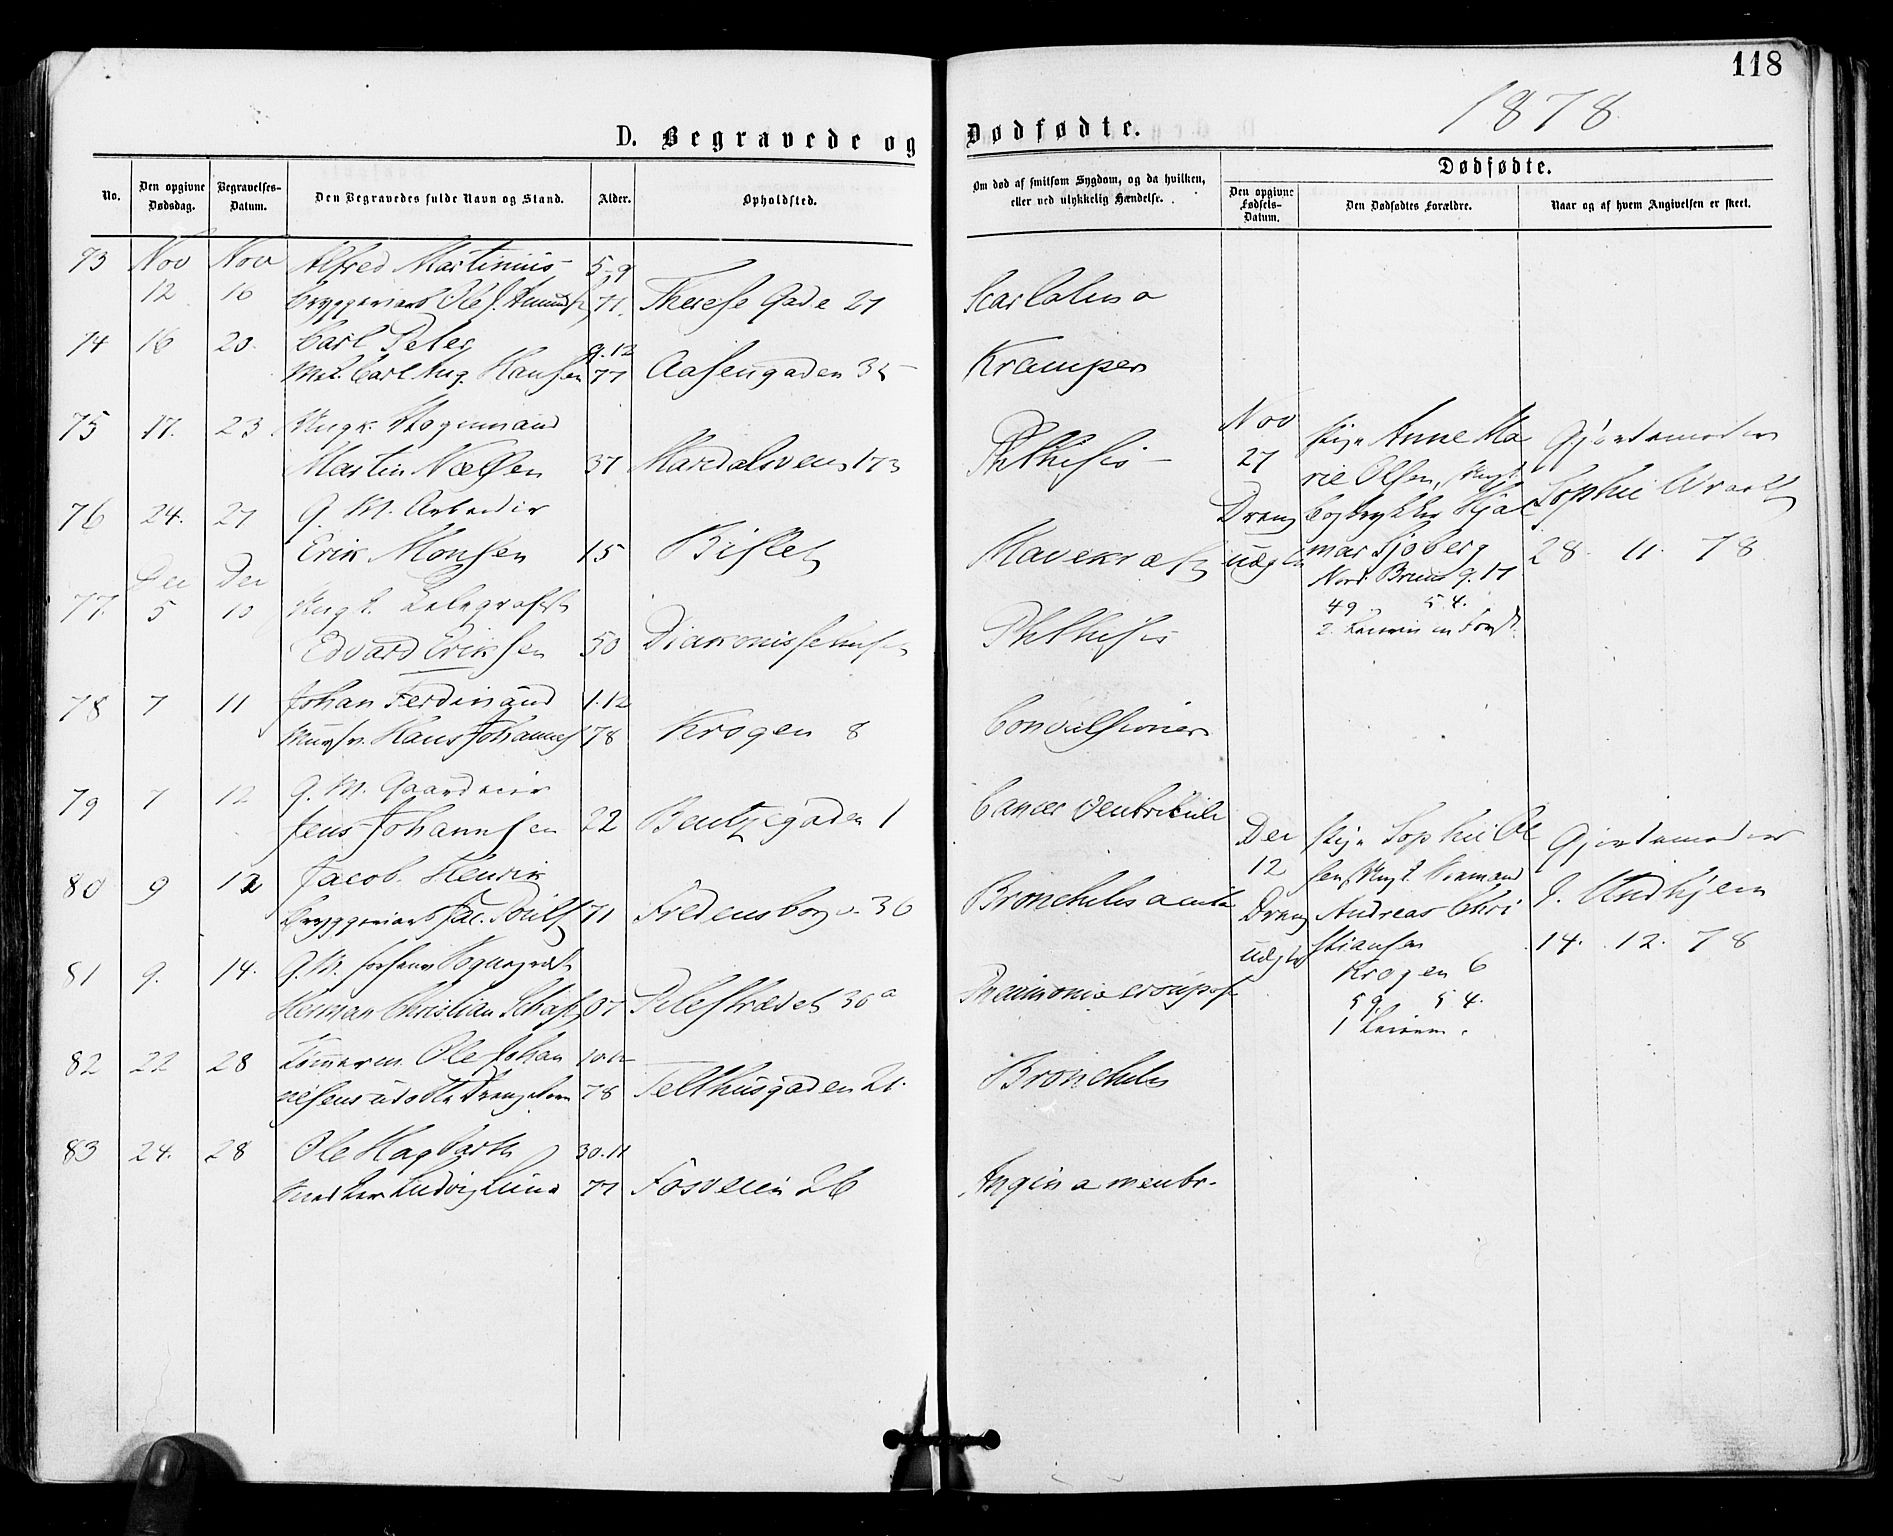 118
1878
D. Begravede og Dødfødte.
No.
Den opgivne Dødsdag.
Begravelses-Datum.
Den Begravedes fulde Navn og Stand.
Alder.
Opholdsted.
Om død af smitsom Sygdom, og da hvilken, eller ved ulykkelig Hændelse.
Dødfødte.
Den opgivne Fødsels-Datum.
Den Dødfødtes Forældre.
Naar og af hvem Angivelsen er skeet.
73 Nov Nov Alfred Martinius 5-9
12 16 Bryggeriarb Ole J. 77. Therese Gade 21 Scarlatina
74 16 20. Carl Peter 9.12
Carl Aug. Hansen 77 Aasengaden 35 Krampen
75 17. 23 Ungk.
Martin Nælsen 37 Maridalsveien 173 Phthisis
76 24. 27 G. M. Arbeider
Erik Monsen 15 Bislet Mavekræft
Dec Dec
77. 5 10 Ungk. Telegrafist
Edvard Eriksen 50 Diakonissehuset Phthisis
78 7 11 Johan Ferdinand 1.12
Hans Johannes 78 Krogen 8 Convulsioner
79 7 12 G. M. Gaardeier
Jens Johannesen 22 Bentzegaden 1 Cancer ventriculi
80 9 12 Jacob Henrik
Bryggeriarb Jac. 77 Fredensborgv. 36 Bronchitis acuta
81 9. 14. G. M.
Herman Christian 07 Pilestrædet 30a Pneumonia crouposa
82 22 28 Tømmerm. Ole Johan 10.12
nesens udøbte Drengebarn 78 Telthusgaden 21. Bronchitis
83 24. 28 Ole Hagbarth 30.11
Snedker Ludvig Lund 77 Fosveien 26 Angina membr.
Nov
27
Dreng
uægte
Pige Anne Ma
rie Olsen, Ungk.
Bogtrykker Hjal
mar Sjøberg
Nord. Brun g. 17
49 54.
Gjordemoder
Sophie
28. 11. 78
Dec
12
Dreng
uægte
Pige Sophie Ol
sen, Ungk. Sømand
Andreas Chri
stiansen
Krogen 6
59. 54.
Gjordemoder
J.
14. 12. 78